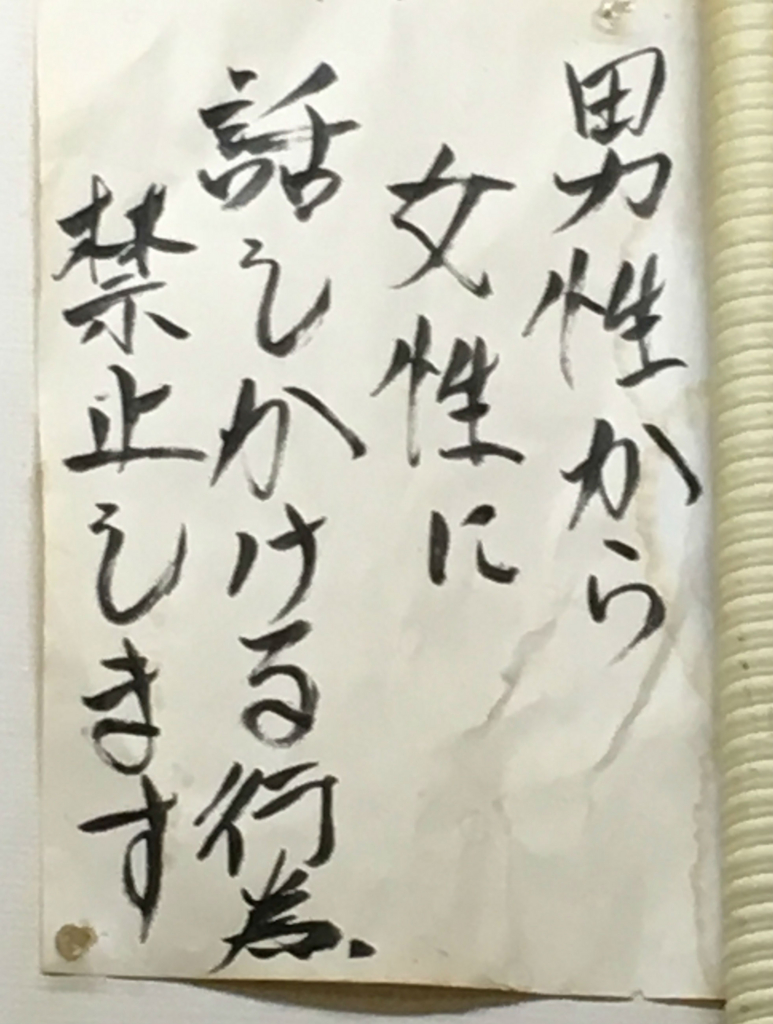 男性から
女性に
話しかける行為、
禁止します